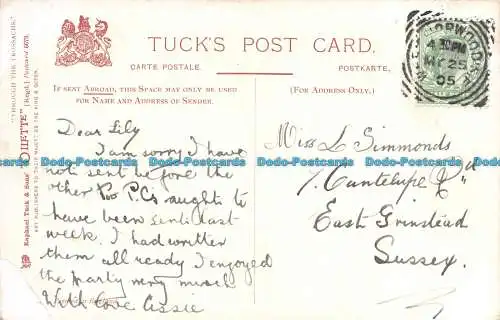 TUCK'S POST CARD.
CARTE POSTALE.
POSTKARTE.
IF SENT ABROAD, THIS SPACE MAY ONLY BE USED
FOR NAME AND ADDRESS OF SENDER.
(FOR ADDRESS ONLY.)
"THROUGH THE TROSSACHS."
Raphael Tuck & Sons' "OILETTE" [Regd.] Postcard
ART PUBLISHERS TO THEIR MAJESTIES THE KING & QUEEN.
NORWOOD
MY 25
05
Dear Lily
I am sorry I have
not sent before the
other P.C's ought to
have been sent last
week. I had written
them all ready I enjoyed
the party very much
With love Cissie
Miss L Simmonds
7. Cantelupe Rd
East Grinstead
Sussex.
Dads-Postcards